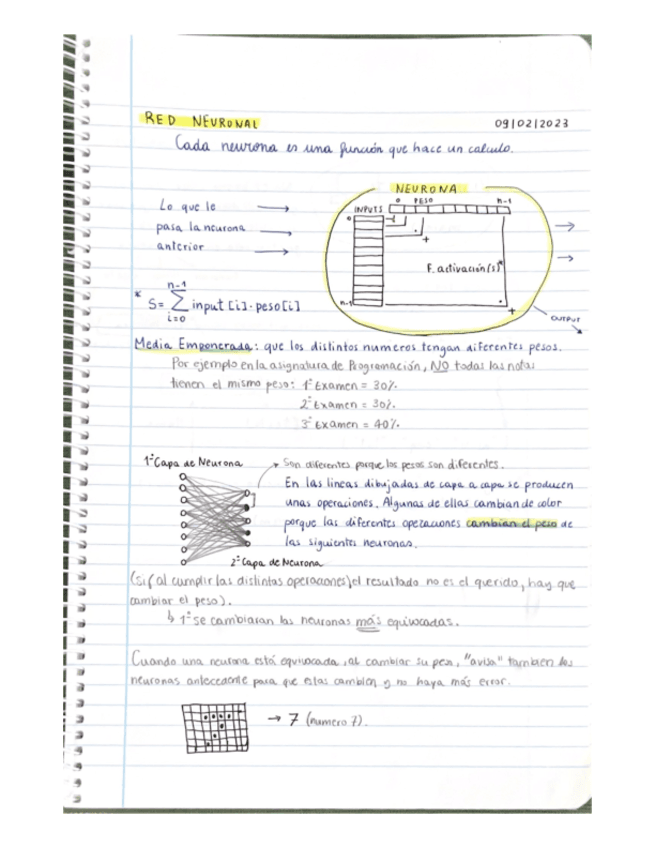 RED NEURONAL
09/02/2023
Cada neurona es una función que hace un calculo.
Lo que le
pasa la neurona
anterior
NEURONA
0 PESO n-1
INPUTS
0
+
F. activación(s)*
n-1
+
OUTPUT
* S= n-1 Σ i=0 input [i]·peso[i]
Media Emponerada: que los distintos numeros tengan diferentes pesos.
Por ejemplo en la asignatura de Programación, NO todas las notas
tienen el mismo peso: 1º Examen = 30%.
2º Examen = 30%.
3º Examen = 40%.
1º Capa de Neurona
Son diferentes porque los pesos son diferentes.
En las lineas dibujadas de capa a capa se producen
unas operaciones. Algunas de ellas cambian de color
porque las diferentes operaciones cambian el peso de
las siguientes neuronas.
2º Capa de Neurona
(Si (al cumplir las distintas operaciones) el resultado no es el querido, hay que
cambiar el peso).
↳ 1º se cambiaran las neuronas más equivocadas.
Cuando una neurona está equivocada, al cambiar su peso, "avisa" tambien las
neuronas antecedente para que estas cambien y no haya más error.
→ 7 (numero 7).